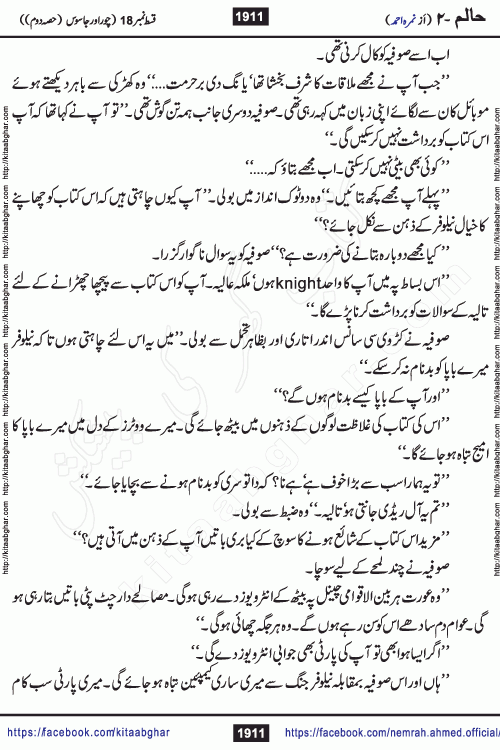 حالم -۲ (از نمرہ احمد)
1911
قسط نمبر 18 (چور اور جاسوس (حصہ دوم))
اب اسے صوفیہ کو کال کرنی تھی۔
”جب آپ نے مجھے ملاقات کا شرف بخشا تھا‘ یانگ دی برحرمت....“ وہ کھڑکی سے باہر دیکھتے ہوئے
موبائل کان سے لگائے اپنی زبان میں کہہ رہی تھی۔ صوفیہ دوسری جانب ہمہ تن گوش تھی۔ ”تو آپ نے کہا تھا کہ آپ
اس کتاب کو برداشت نہیں کر سکیں گی۔“
”کوئی بھی بیٹی نہیں کر سکتی۔ اب مجھے بتاؤ کہ.....“
”پہلے آپ مجھے کچھ بتائیں۔“ وہ دوٹوک انداز میں بولی۔ ”آپ کیوں چاہتی ہیں کہ اس کتاب کو چھاپنے
کا خیال نیلوفر کے ذہن سے نکل جائے؟“
”کیا مجھے دوبارہ بتانے کی ضرورت ہے؟“ صوفیہ کو یہ سوال ناگوار گزرا۔
”اس بساط پہ میں آپ کا واحد knight ہوں‘ ملکہ عالیہ۔ آپ کو اس کتاب سے پیچھا چھڑانے کے لئے
تالیہ کے سوالات کو برداشت کرنا پڑے گا۔“
صوفیہ نے کڑوی سی سانس اندر اتاری اور بظاہر تحمل سے بولی۔ ”میں یہ اس لئے چاہتی ہوں تاکہ نیلوفر
میرے باپا کو بدنام نہ کر سکے۔“
”اور آپ کے باپا کیسے بدنام ہوں گے؟“
”اس کی کتاب کی غلاظت لوگوں کے ذہنوں میں بیٹھ جائے گی۔ میرے ووٹرز کے دل میں میرے باپا کا
امیج تباہ ہو جائے گا۔“
”تو یہ ہمارا سب سے بڑا خوف ہے‘ ہے نا؟ کہ داتو سری کو بدنام ہونے سے بچایا جائے۔“
”تم یہ آل ریڈی جانتی ہو‘ تالیہ۔“ وہ ضبط سے بولی۔
”مزید اس کتاب کے شائع ہونے کا سوچ کے کیا بری باتیں آپ کے ذہن میں آتی ہیں؟“
صوفیہ نے چند لمحے کے لیے سوچا۔
”وہ عورت ہر بین الاقوامی چینل پہ بیٹھ کے انٹرویوز دے رہی ہو گی۔ مصالحے دار چٹ پٹی باتیں بتا رہی ہو
گی۔ عوام دم سادھے اس کو سن رہے ہوں گے۔ وہ ہر جگہ چھائی ہو گی۔“
”اگر ایسا ہوا بھی تو آپ کی پارٹی بھی جوابی انٹرویوز دے گی۔“
”ہاں اور اس صوفیہ بمقابلہ نیلوفر جنگ سے میری ساری کیمپئین تباہ ہو جائے گی۔ میری پارٹی سب کام
https://facebook.com/kitaabghar
1911
https://facebook.com/nemrah.ahmed.official/
http://kitaabghar.com http://kitaabghar.com http://kitaabghar.com http://kitaabghar.com http://kitaabghar.com
http://kitaabghar.com http://kitaabghar.com http://kitaabghar.com http://kitaabghar.com http://kitaabghar.com